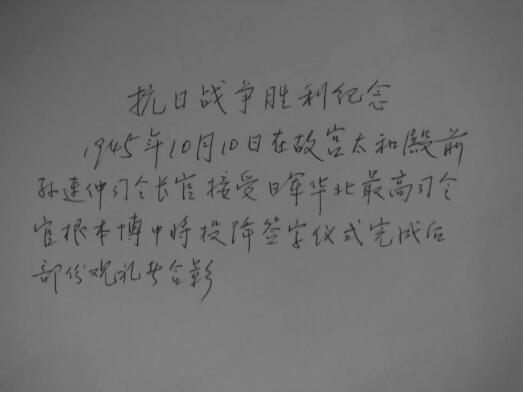 抗日战争胜利纪念
1945年10月10日在故宫太和殿前
孙连仲司令长官接受日军华北最高司令
官根本博中将投降签字仪式完成后
部份观礼者合影